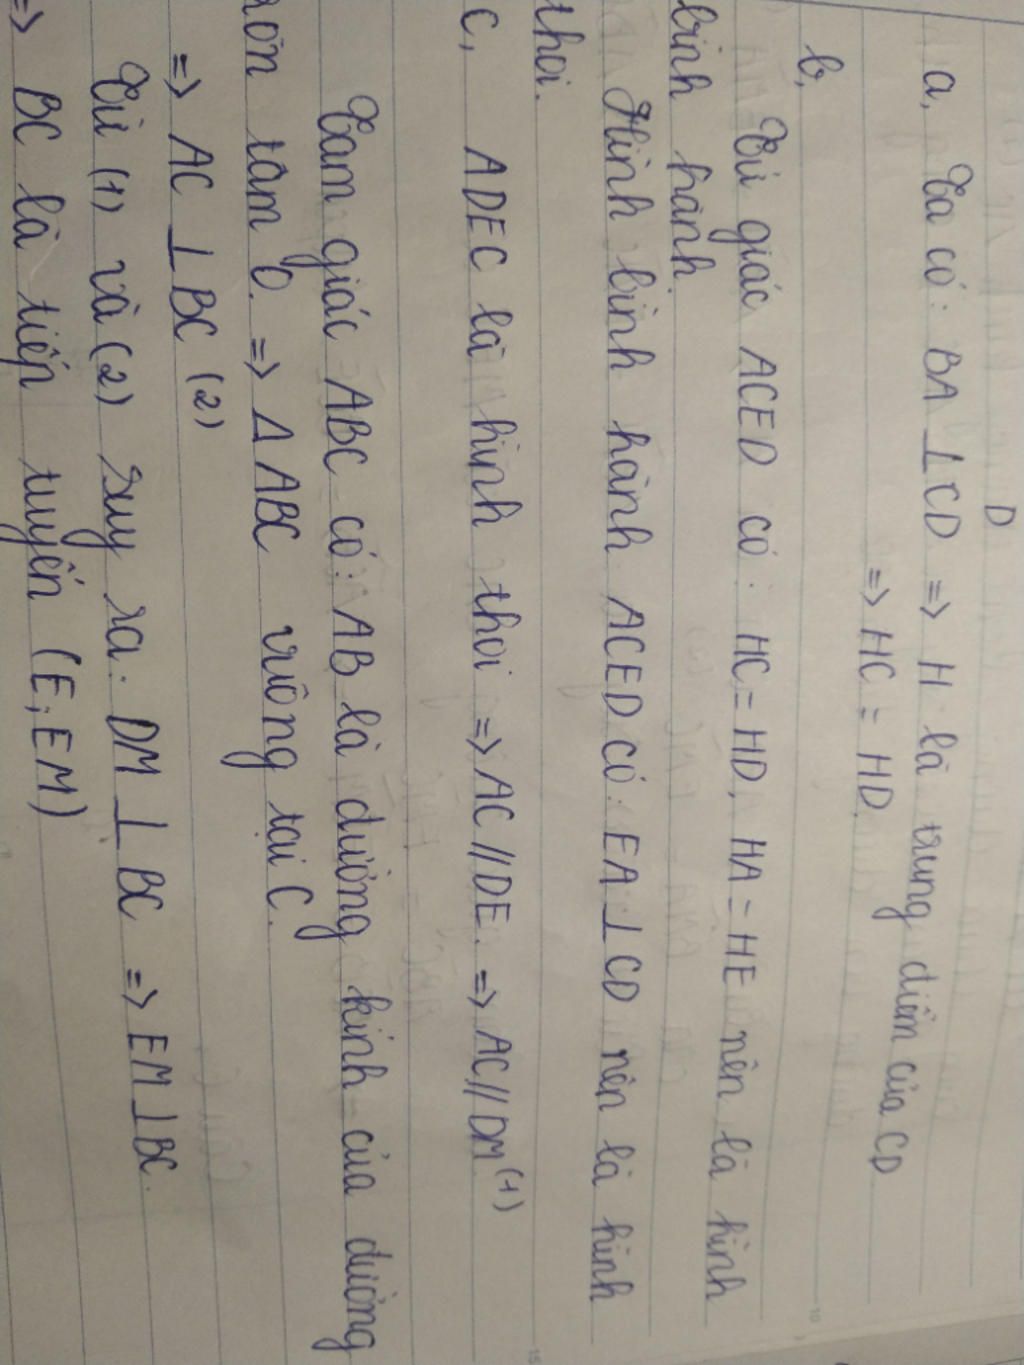 D
a, Ta có: BA ⊥ CD => H là trung điểm của CD
=> HC = HD.
b,
Tứ giác ACED có: HC = HD, HA = HE nên là hình
bình hành.
Hình bình hành ACED có: EA ⊥ CD nên là hình
thoi.
C, ADEC là hình thoi => AC // DE. => AC // DM (1)
Tam giác ABC có: AB là đường kính của đường
tròn tâm O. => Δ ABC vuông tại C.
=> AC ⊥ BC (2)
Từ (1) và (2) suy ra: DM ⊥ BC => EM ⊥ BC.
=> BC là tiếp tuyến (E; EM)